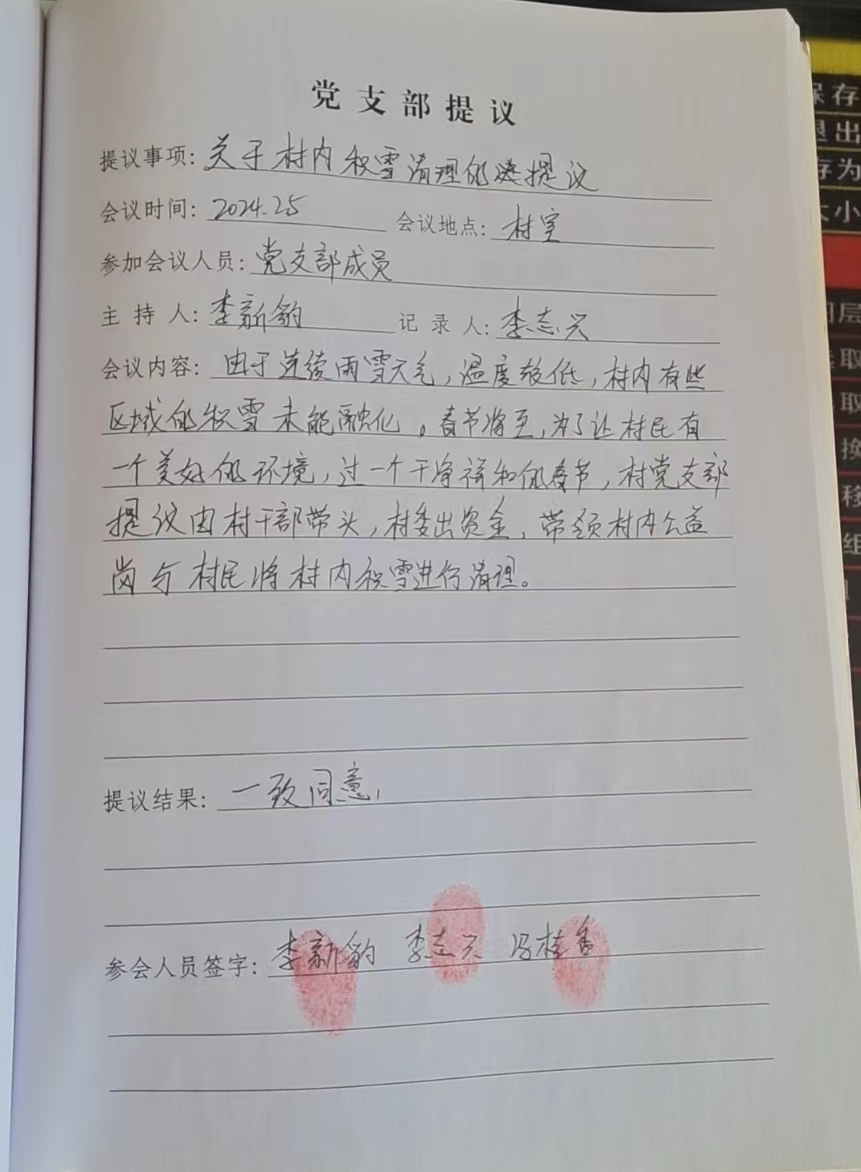 党支部提议
提议事项: 关于村内积雪清理的提议
会议时间: 2024.2.5 会议地点: 村室
参加会议人员: 党支部成员
主持人: 李新豹 记录人: 李志兴
会议内容: 由于连续雨雪天气,温度较低,村内有些
区域的积雪未能融化。春节将至,为了让村民有
一个美好的环境,过一个干净祥和的春节,村党支部
提议由村干部带头,村委出资金,带领村内公益
岗与村民将村内积雪进行清理。
提议结果: 一致同意
参会人员签字: 李新豹 李志兴 冯桂香
保存
退出
存为
大小
图层
选取
取
换
移
组